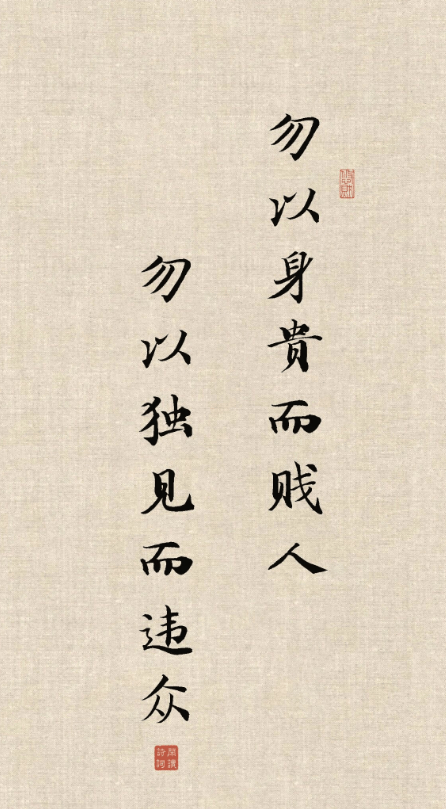 勿以身贵而贱人
勿以独见而违众